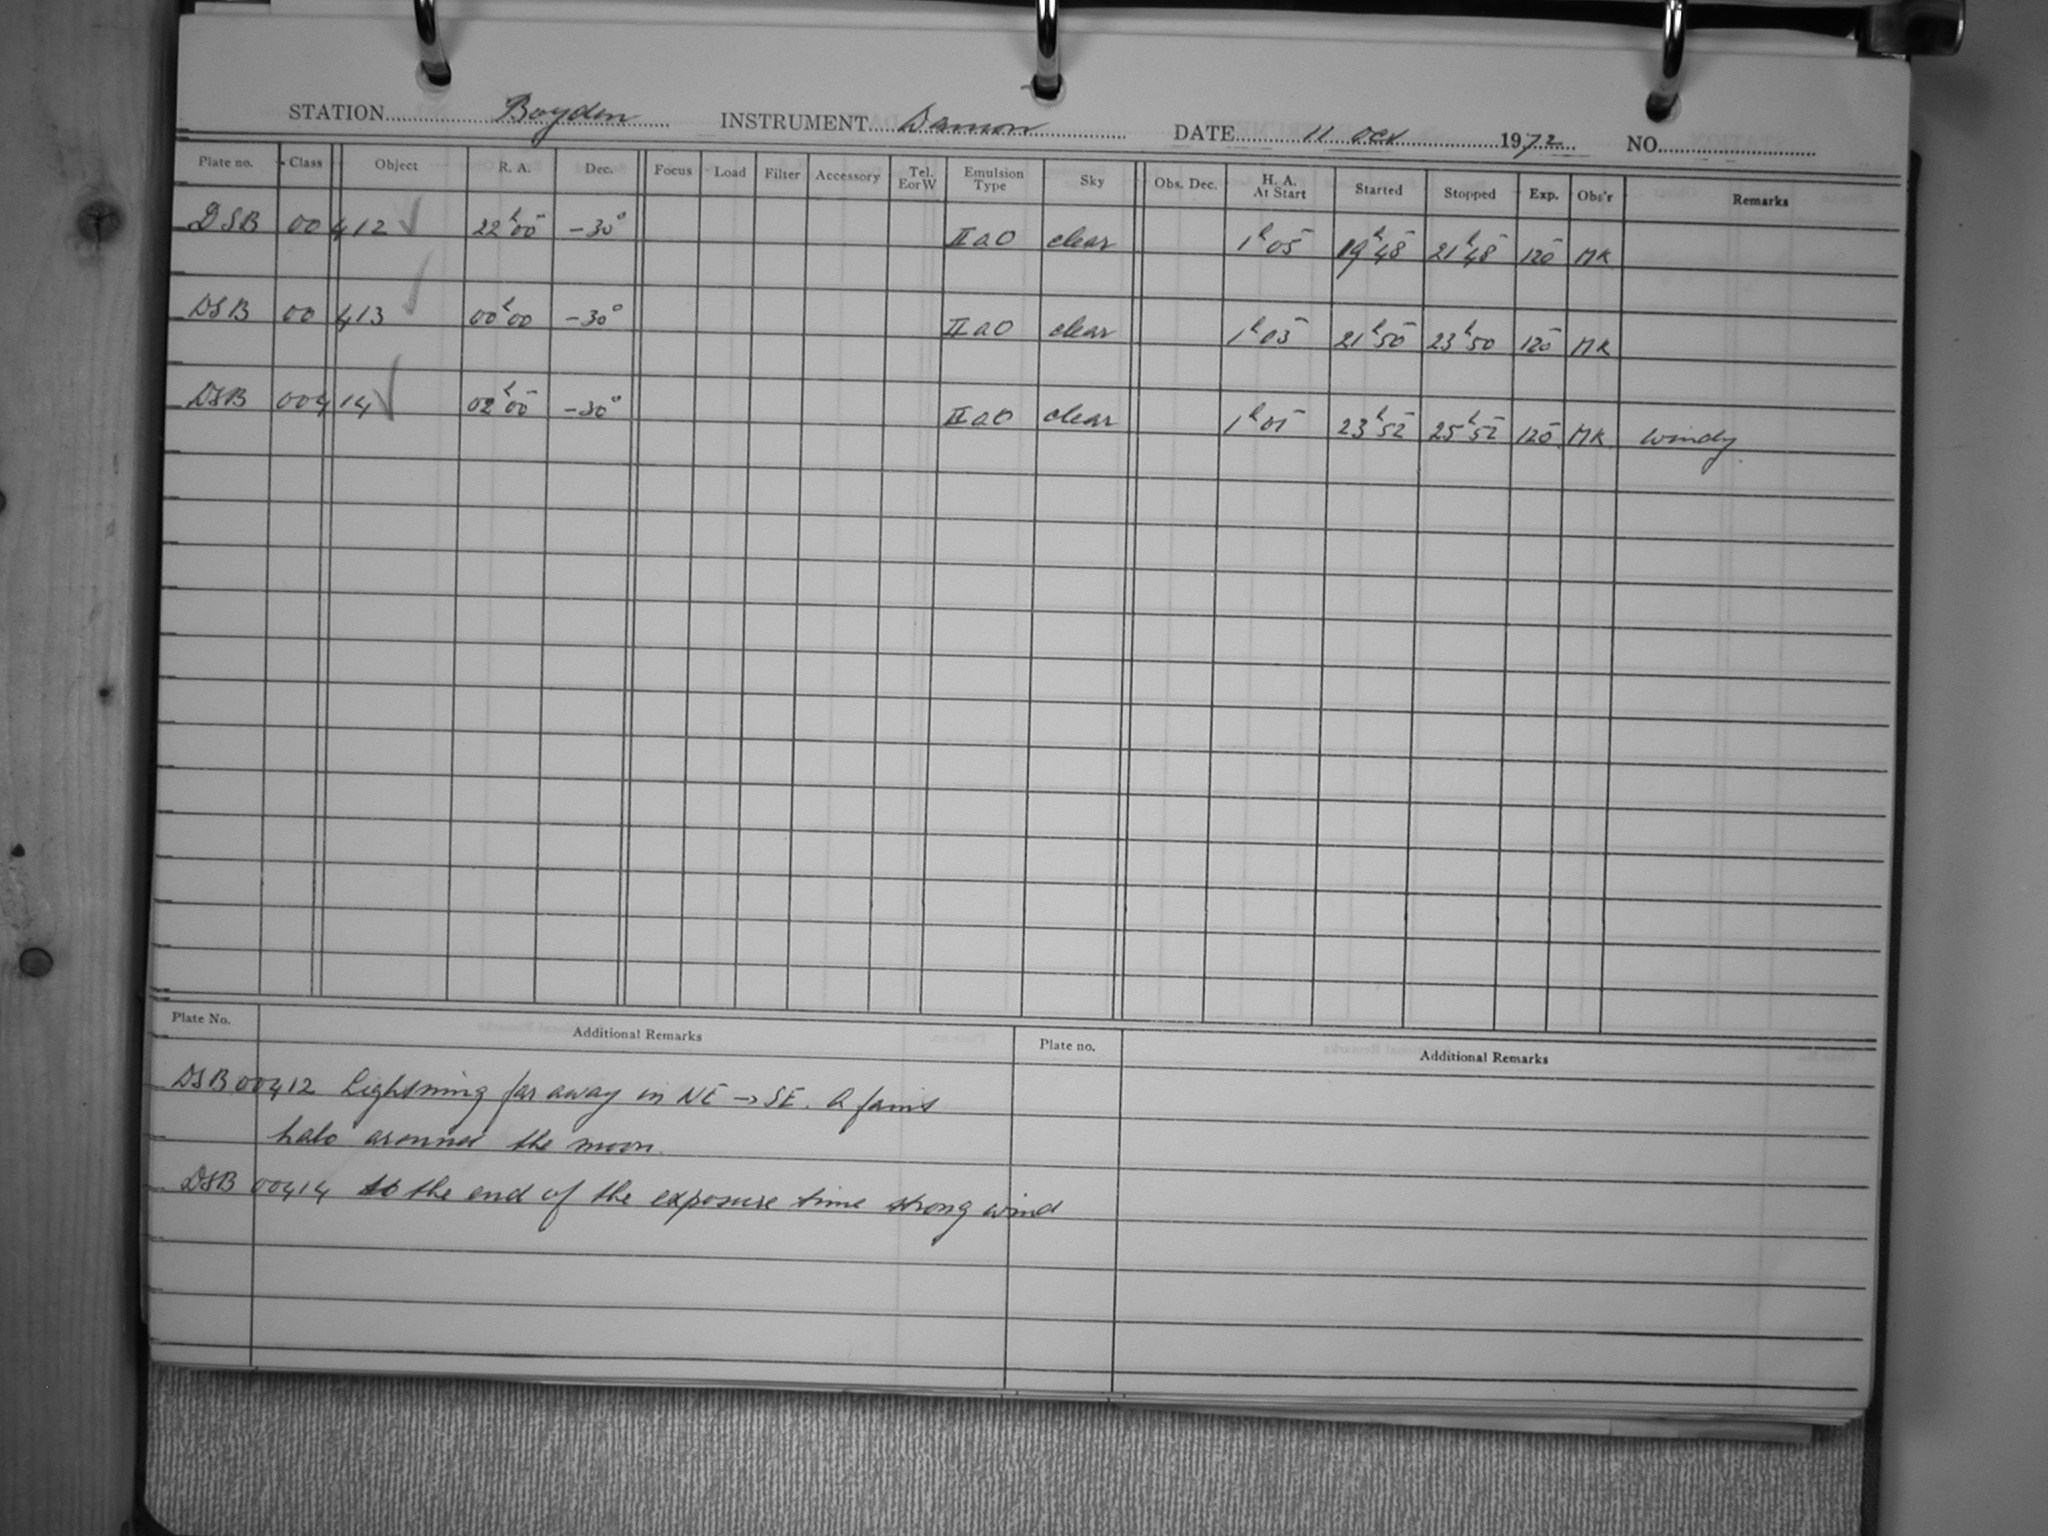 STATION Boyden INSTRUMENT Damon DATE 11 Oct 1972 NO.
Plate no. Class Object R. A. Dec. Focus Load Filter Accessory Tel. E or W Emulsion Type Sky Obs. Dec. H. A. At Start Started Stopped Exp. Obs'r Remarks
DSB 00412 ✓ 22h00m -30° IIaO clear 1h05m 19h48m 21h48m 120m MK
DSB 00413 ✓ 00h00 -30° IIaO clear 1h03m 21h50m 23h50m 120m MK
DSB 00414 ✓ 02h00m -30° IIaO clear 1h01m 23h52m 25h52m 120m MK windy
Plate No. Additional Remarks Plate no. Additional Remarks
DSB 00412 Lightning far away in NE → SE. A faint
halo around the moon.
DSB 00414 to the end of the exposure time strong wind